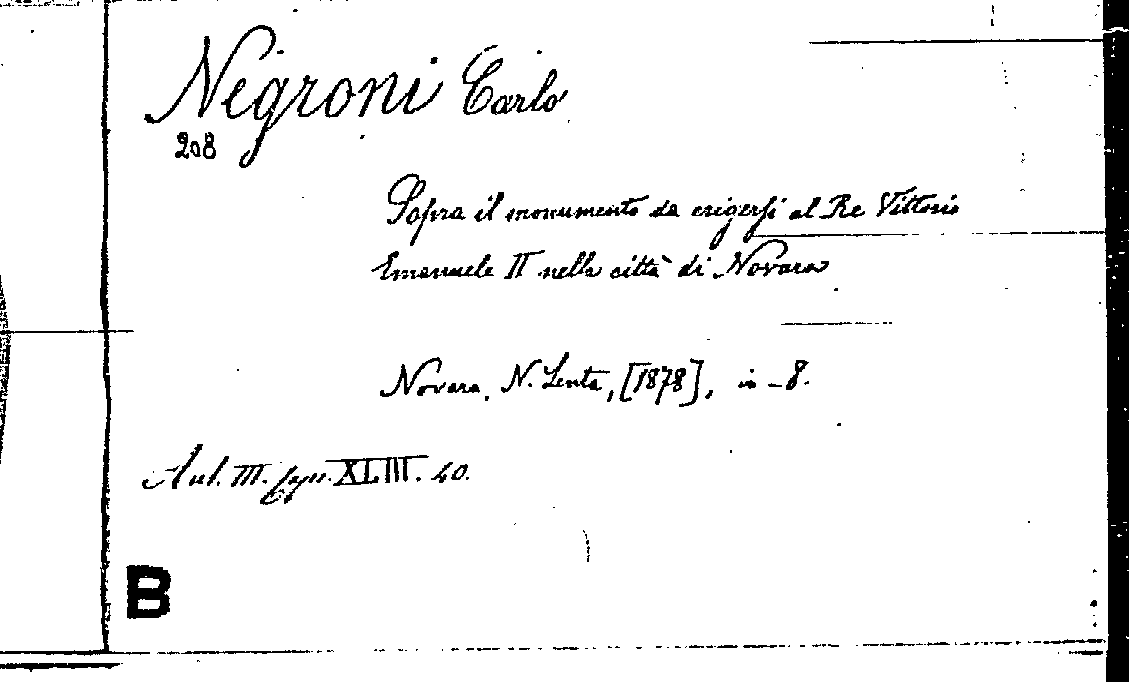 Negroni Carlo
208
Sopra il monumento da erigersi al Re Vittorio
Emanuele II nella città di Novara
Novara, N. Lenta, [1878], in-8.
Aul. III. XLIII. 40.
B